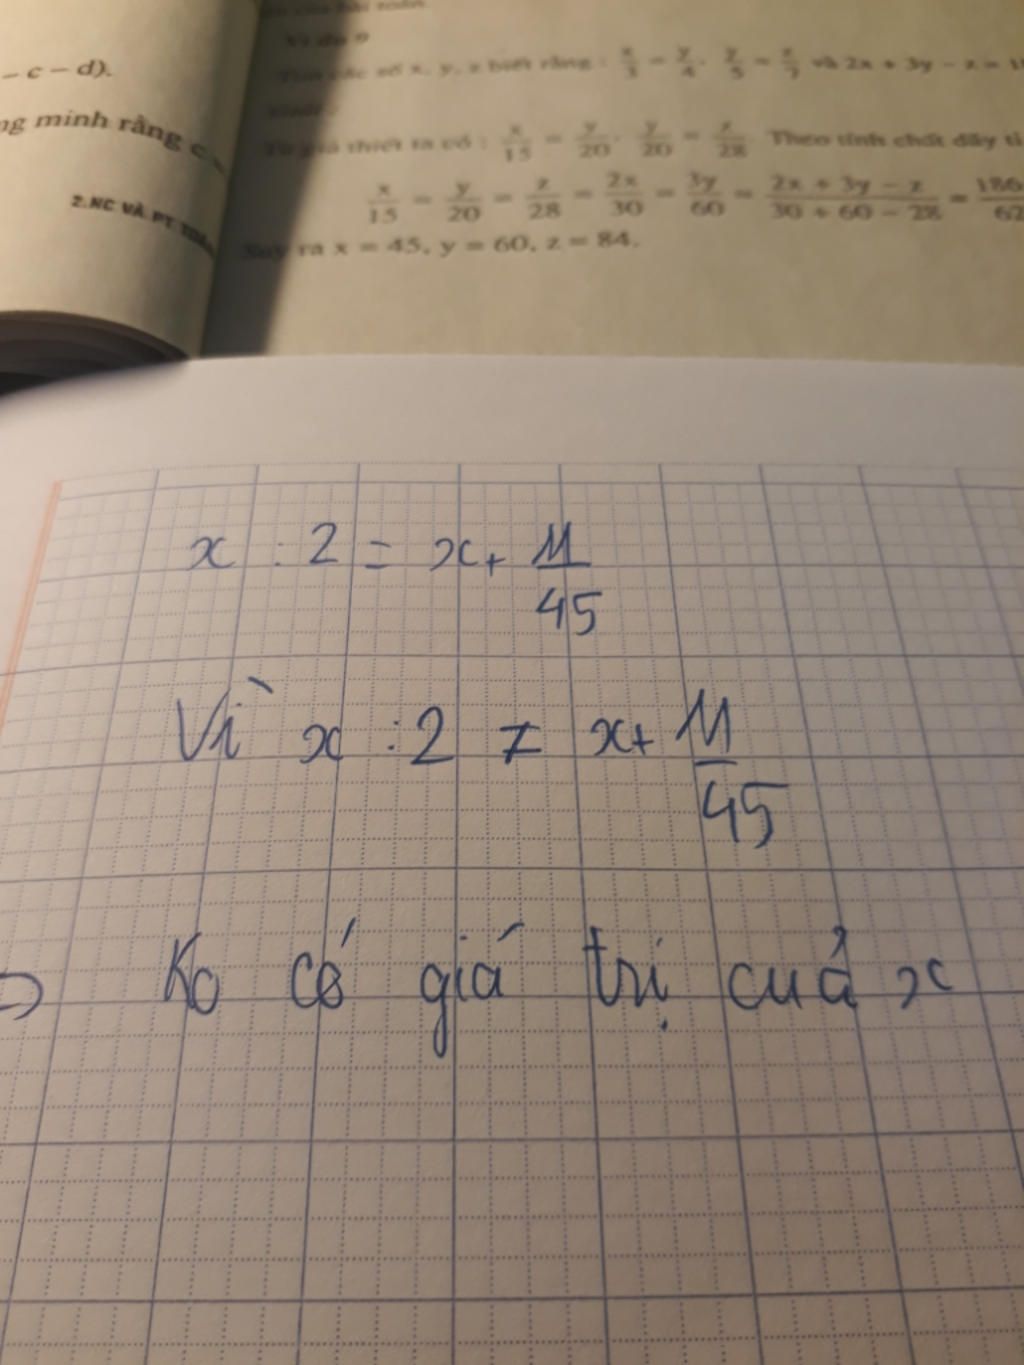 – c – d).
minh rằng
2.NC VÀ PT
Ví dụ 9
Tìm các số x, y, z biết rằng : x/3 = y/4, y/5 = z/7 và 2x + 3y – z =
Từ giả thiết ta có : x/15 = y/20, y/20 = z/28 Theo tính chất dãy tỉ
x/15 = y/20 = z/28 = 2x/30 = 3y/60 = (2x + 3y – z)/(30 + 60 – 28) = 186/62
Suy ra x = 45, y = 60, z = 84.
x : 2 = x + 11/45
Vì x : 2 ≠ x + 11/45
Ko có giá trị của x